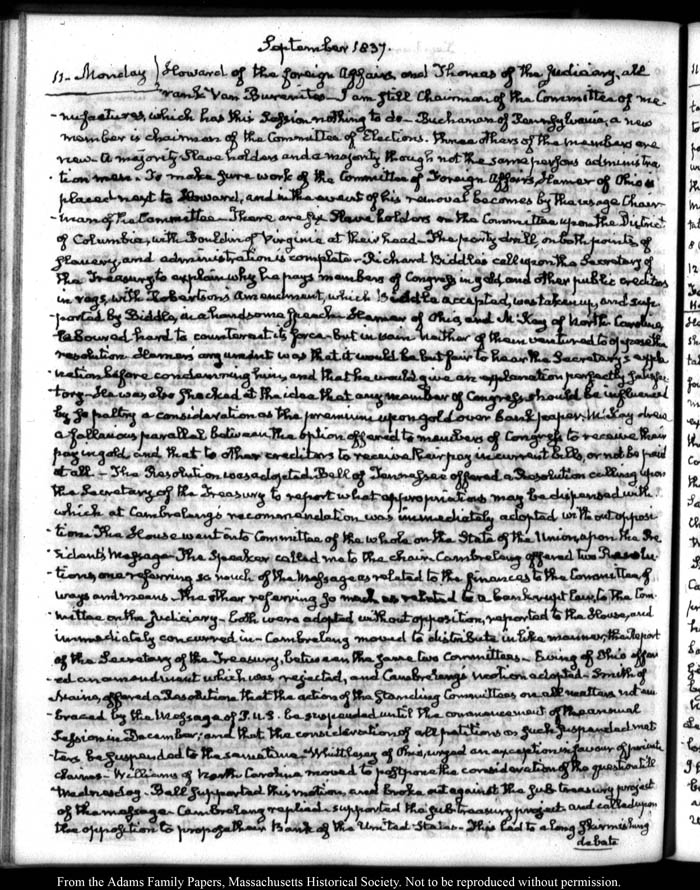 September 1837.
11. Monday } Howard of the foreign Affairs, and Thomas of the Judiciary, all
rank Van Burenites. I am still Chairman of the Committee of ma-
-nufactures, which has this Session nothing to do. Buchanan of Pennsylvania, a new
member is chairman of the Committee of Elections. three others of the members are
new. A majority Slave holders and a majority though not the same persons administra-
-tion men. To make sure work of the Committee of Foreign Affairs, Hamer of Ohio is
placed next to Howard, and in the event of his removal becomes by the usage Chair-
-man of the Committee. There are six Slave holders on the Committee upon the District
of Columbia, with Bouldin of Virginia at their head. The party drill, on both points of
slavery, and administration is complete. Richard Biddle's call upon the Secretary of
the Treasury to explain why he pays members of Congress in gold, and other public creditors
in rags, with Robertson's amendment, which Biddle accepted, was taken up, and sup-
-ported by Biddle, in a handsome speech. Hamer of Ohio, and McKay of North Carolina,
laboured hard to counteract its force but in vain neither of them ventured to oppose the
resolution Hamer's argument was that it would be but fair to hear the Secretary's expla-
-nation before condemning him, and that he would give an explanation perfectly satisfac-
-tory. He was also shocked at the idea that any member of Congress should be influenced
by so paltry a consideration as the premium upon gold over bank paper. McKay drew
a fallacious parallel between the option offered to members of Congress to receive their
pay in gold, and that to other creditors to receive their pay in current bills, or not be paid
at all. The Resolution was adopted. Bell of Tennessee offered a Resolution calling upon
the Secretary of the Treasury to report what appropriations may be dispensed with.
which at Cambreleng's recommendation was immediately adopted without opposi-
-tion. The House went into Committee of the whole on the State of the Union, upon the Pre-
-sident's Message. The Speaker called me to the chair. Cambreleng offered two Resolu-
-tions, one referring so much of the Message as related to the finances to the Committee of
ways and means. the other referring so much as related to a bankrupt law, to the Com-
-mittee on the Judiciary. both were adopted without opposition, reported to the House, and
immediately concurred in. Cambreleng moved to distribute in like manner, the Report
of the Secretary of the Treasury, between the same two Committees. Ewing of Ohio offer-
-ed an amendment which was rejected, and Cambreleng's motion adopted. Smith of
Maine, offered a Resolution that the action of the Standing Committees on all matters not em-
-braced by the Message of P.U.S. be suspended until the commencement of the annual
Session in December; and that the consideration of all petitions on such suspended mat-
-ters be suspended to the same time. Whittlesey of Ohio, urged an exception in favour of private
claims. Williams of North Carolina moved to postpone the consideration of the question till
Wednesday. Bell supported this motion, and broke out against the sub treasury project
of the message. Cambreleng replied. supported the sub treasury project, and called upon
the opposition to propose their Bank of the United States. This led to a long skirmishing
debate
From the Adams Family Papers, Massachusetts Historical Society. Not to be reproduced without permission.